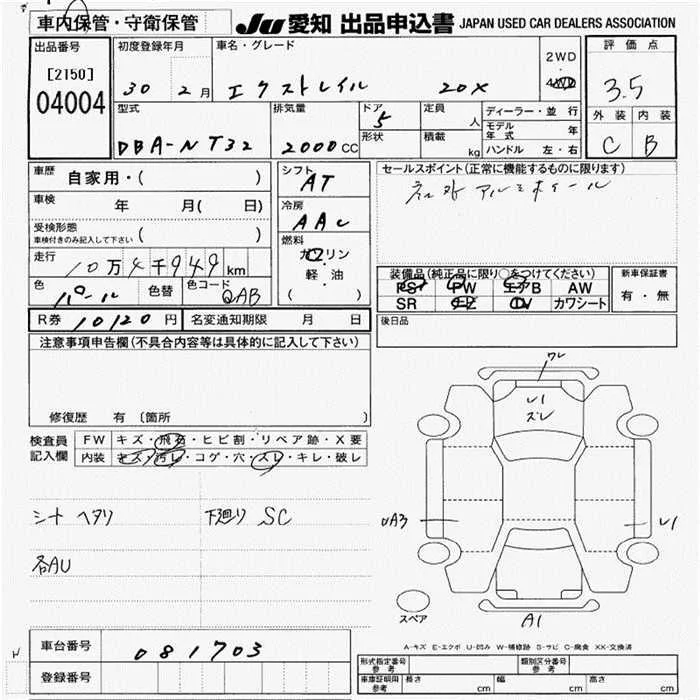 車内保管・守衛保管
JU 愛知 出品申込書 JAPAN USED CAR DEALERS ASSOCIATION
出品番号
[2150]
04004
初度登録年月
30 2月
車名・グレード
エクストレイル 20X
2WD
4WD
評価点
3.5
外装 内装
C B
型式
DBA-NT32
排気量
2000CC
ドア
5
形状
定員
人
積載
kg
ディーラー・並行
モデル年式 年
ハンドル 左・右
車歴 自家用・( )
車検 年 月( 日)
受検形態
車検付きのみ記入して下さい ( )
走行 10万4千949km
色 パール 色替 色コード QAB
シフト
AT
冷房
AAC
燃料
ガソリン
軽・油
( )
セールスポイント(正常に機能するものに限ります)
アルミホイール
装備品(純正品に限り○をつけてください)
PS PW エアB AW
SR ナビ TV カワシート
新車保証書
有・無
R券 10120円 名変通知期限 月 日
後日品
注意事項申告欄(不具合内容等は具体的に記入して下さい)
修復歴 有 〔箇所 〕
検査員記入欄
FW キズ・飛石・ヒビ割・リペア跡・X要
内装 キズ・汚レ・コゲ・穴・スレ・キレ・破レ
シート ヘタリ 下廻り SC
各AU
ワレ
U1
ズレ
UA3
U1
スペア
A1
A-キズ E-エクボ U-凹み W-補修跡 S-サビ C-腐食 XX-交換済
車台番号 081703
登録番号
型式指定番号 参考
類別区分番号 参考
車庫証明用 参考 長さ cm 幅 cm 高さ cm